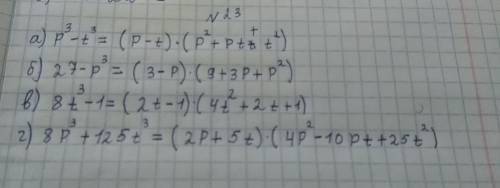 №23
а) p³-t³ = (p-t)·(p²+pt+t²)
б) 27-p³ = (3-p)·(9+3p+p²)
в) 8t³-1 = (2t-1)·(4t²+2t+1)
г) 8p³+125t³ = (2p+5t)·(4p²-10pt+25t²)